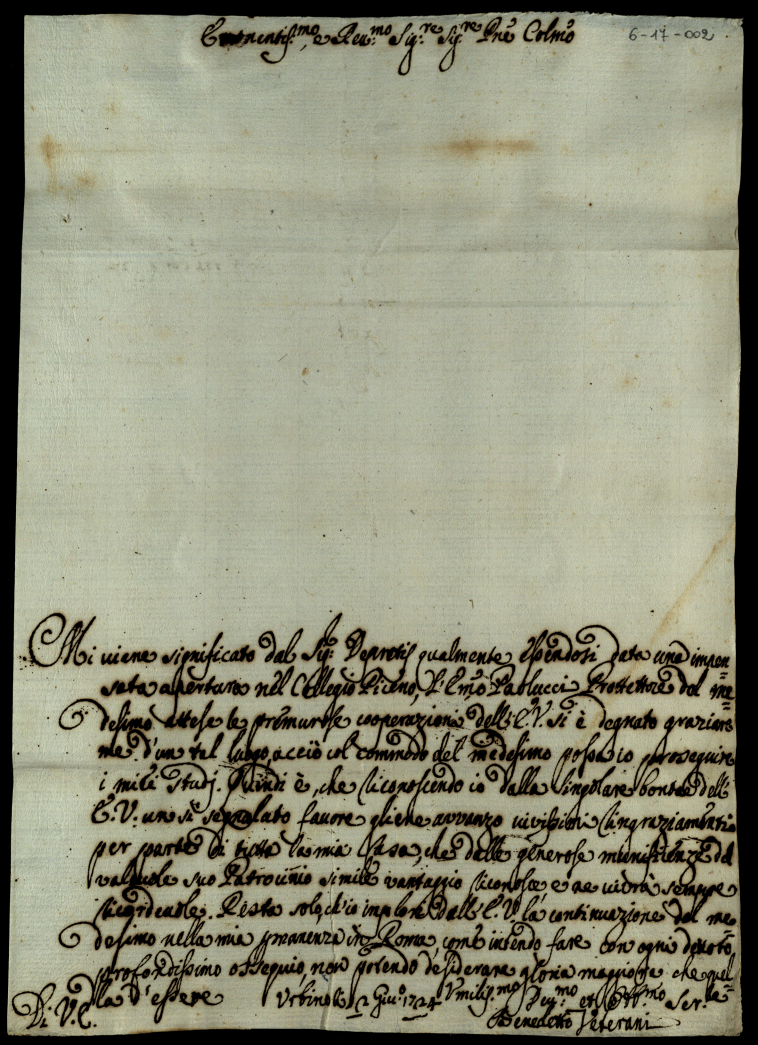 Eminentis.mo, e Reu.mo Sig.re Sig.re Pne Colmo
6-17-002
Mi uiene significato dal Sig.r Depretis qualmente essendosi data una impen=
sata apertura nel Collegio Piceno, l'Emo Paolucci Protettore del me=
desimo attese le premurose cooperazioni dell'E.V. si è degnato graziar
me d'un tal luogo, acciò col commodo del medesimo possa io proseguire
i miei studj. Quindi è, che riconoscendo io dalla singolare bontà dell'
E.V. un sì segnalato fauore gliene auuanzo uiuissimi ringraziamenti
per parte di tutta la mia Casa, che dalle generose munificienze del
valeuole suo Patrocinio simile vantaggio riconosce e ne uiurà sempre
ricordeuole. Resta solo, ch'io implori dall'E.V. la continuazione del me
desimo nella mia permanenza in Roma, come intendo fare con ogni deuoto,
profondissimo ossequio, non potendo desiderare gloria maggiore che quel
la d'essere Urbino li 12 Giug.o 1724 Vmilis.mo Deu.mo et Obb.mo Ser.re
Di V.E. Benedetto Veterani